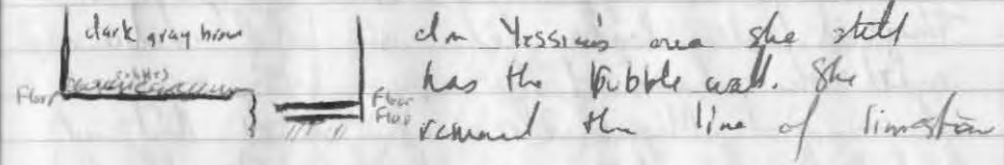 dark gray brown
Floor
Floor
Floor
In Yessica's area she still
has the rubble wall. She
removed the line of limeston